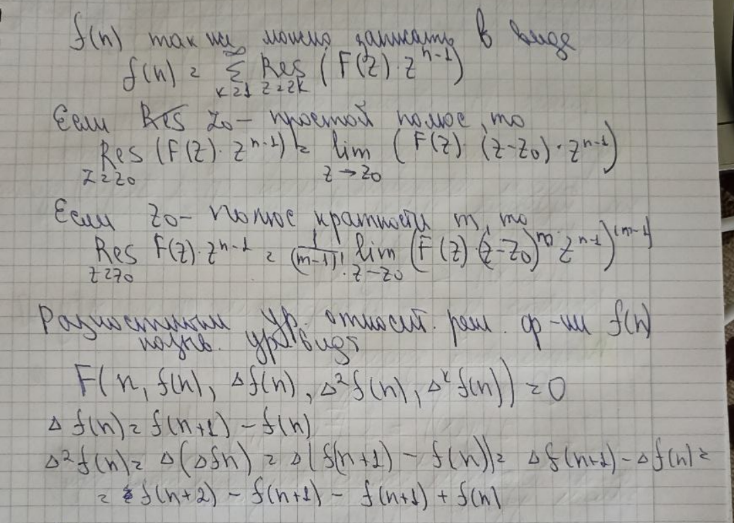 f(n) так же можно записать в виде
f(n) = ∞ Σ k=1 Res z=zk (F(z)·z^(n-1))
Если z0 - простой полюс, то
Res z=z0 (F(z)·z^(n-1)) = lim z→z0 (F(z)·(z-z0)·z^(n-1))
Если z0 - полюс кратности m, то
Res z=z0 F(z)·z^(n-1) = 1/(m-1)! · lim z→z0 (F(z)·(z-z0)^m z^(n-1))^(m-1)
Разностным ур. относит. реш. ф-ии f(n)
назыв. ур. вида
F(n, f(n), Δf(n), Δ²f(n), Δ^k f(n)) = 0
Δf(n) = f(n+1) - f(n)
Δ²f(n) = Δ(Δfn) = Δ(f(n+1) - f(n)) = Δf(n+1) - Δf(n) =
= f(n+2) - f(n+1) - f(n+1) + f(n)